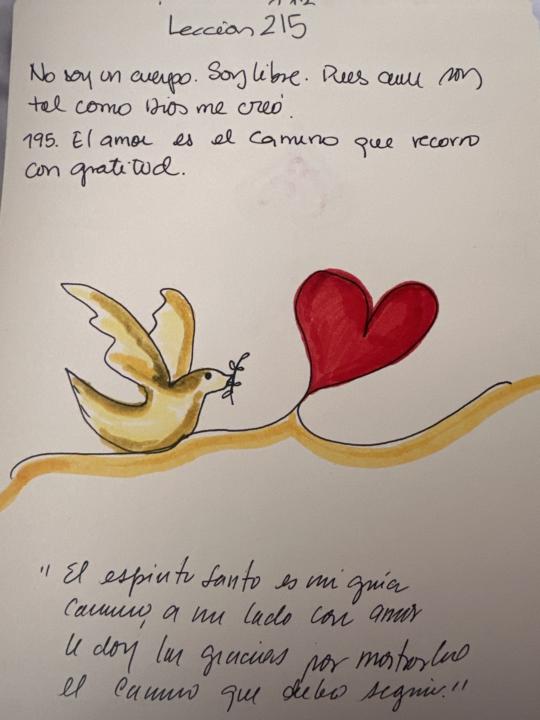 Lección 215
No soy un cuerpo. Soy libre. Pues aun soy
tal como Dios me creó.
195. El amor es el camino que recorro
con gratitud.
"El espíritu Santo es mi guía
camina a mi lado con amor
le doy las gracias por mostrarme
el camino que debo seguir."